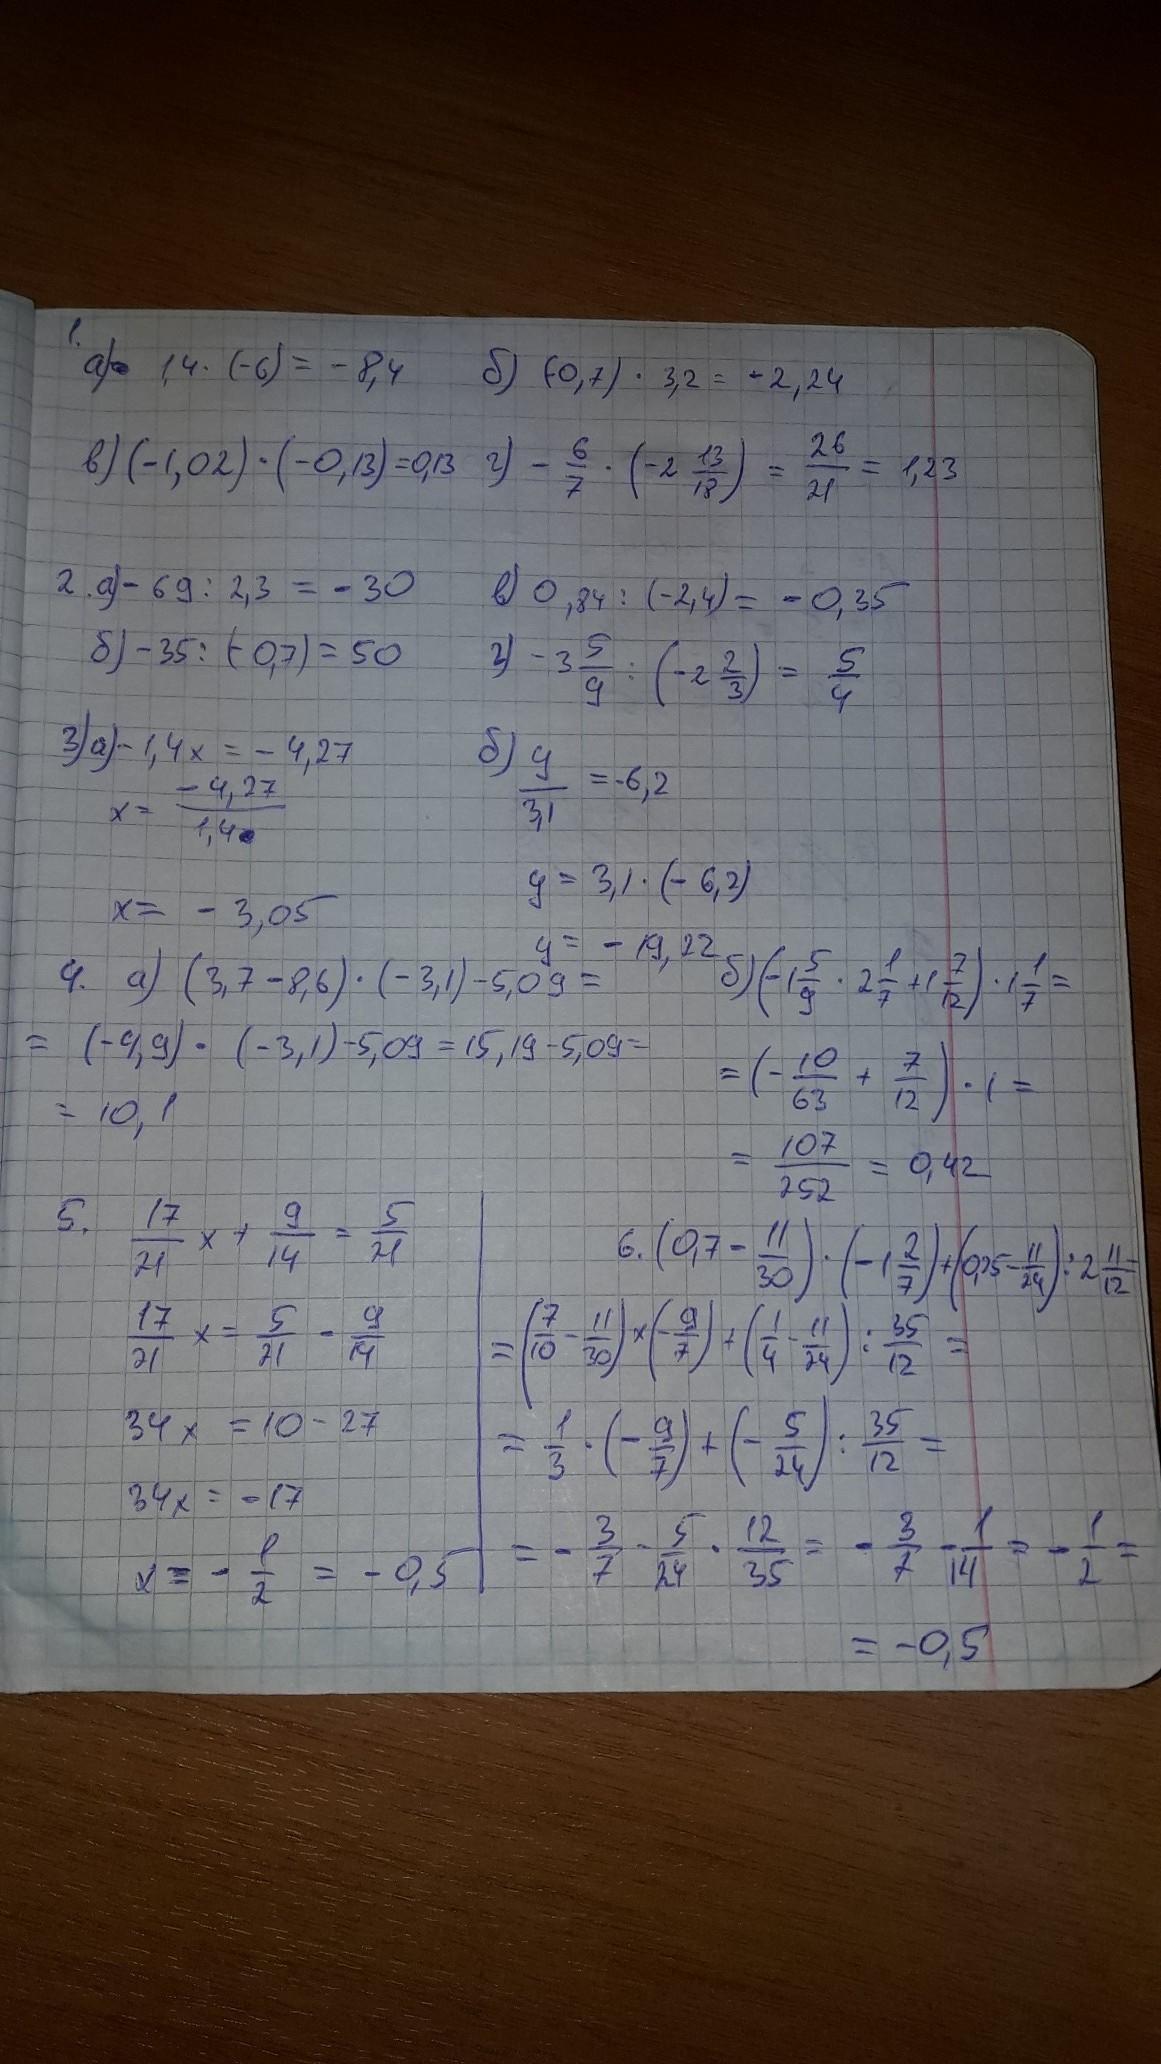 1.
а) 1,4 · (-6) = -8,4 б) (-0,7) · 3,2 = -2,24
в) (-1,02) · (-0,13) = 0,13 г) - 6/7 · (-2 13/18) = 26/21 = 1,23
2. а) - 69 : 2,3 = -30 в) 0,84 : (-2,4) = -0,35
б) -35 : (-0,7) = 50 г) -3 5/9 : (-2 2/3) = 5/4
3) а) -1,4x = -4,27 б) y/3,1 = -6,2
x = -4,27/1,4
y = 3,1 · (-6,2)
x = -3,05
y = -19,22
4. а) (3,7 - 8,6) · (-3,1) - 5,09 = б) (-1 5/9 · 2 1/7 + 1 7/12) · 1 1/7 =
= (-4,9) · (-3,1) - 5,09 = 15,19 - 5,09 =
= (-10/63 + 7/12) · 1 =
= 10,1
= 107/252 = 0,42
5. 17/21 x + 9/14 = 5/21
17/21 x = 5/21 - 9/14
34x = 10 - 27
34x = -17
x = - 1/2 = -0,5
6. (0,7 - 11/30) · (-1 2/7) + (0,25 - 11/24) : 2 11/12 =
= (7/10 - 11/30) × (-9/7) + (1/4 - 11/24) : 35/12 =
= 1/3 · (-9/7) + (-5/24) : 35/12 =
= - 3/7 - 5/24 · 12/35 = - 3/7 - 1/14 = - 1/2 =
= -0,5